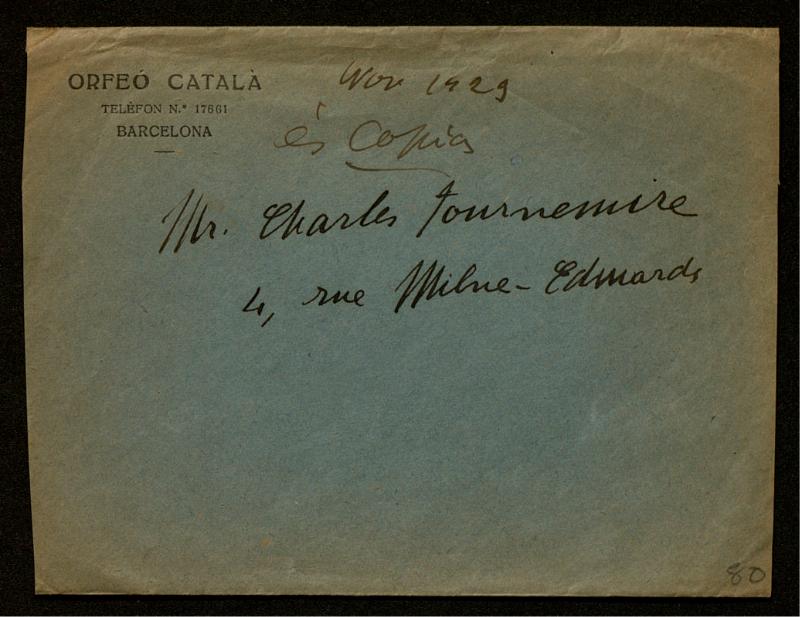 ORFEÓ CATALÀ
TELÈFON N.º 17661
BARCELONA
Nov 1929
és Copia
Mr. Charles Tournemire
4, rue Milne-Edwards
80